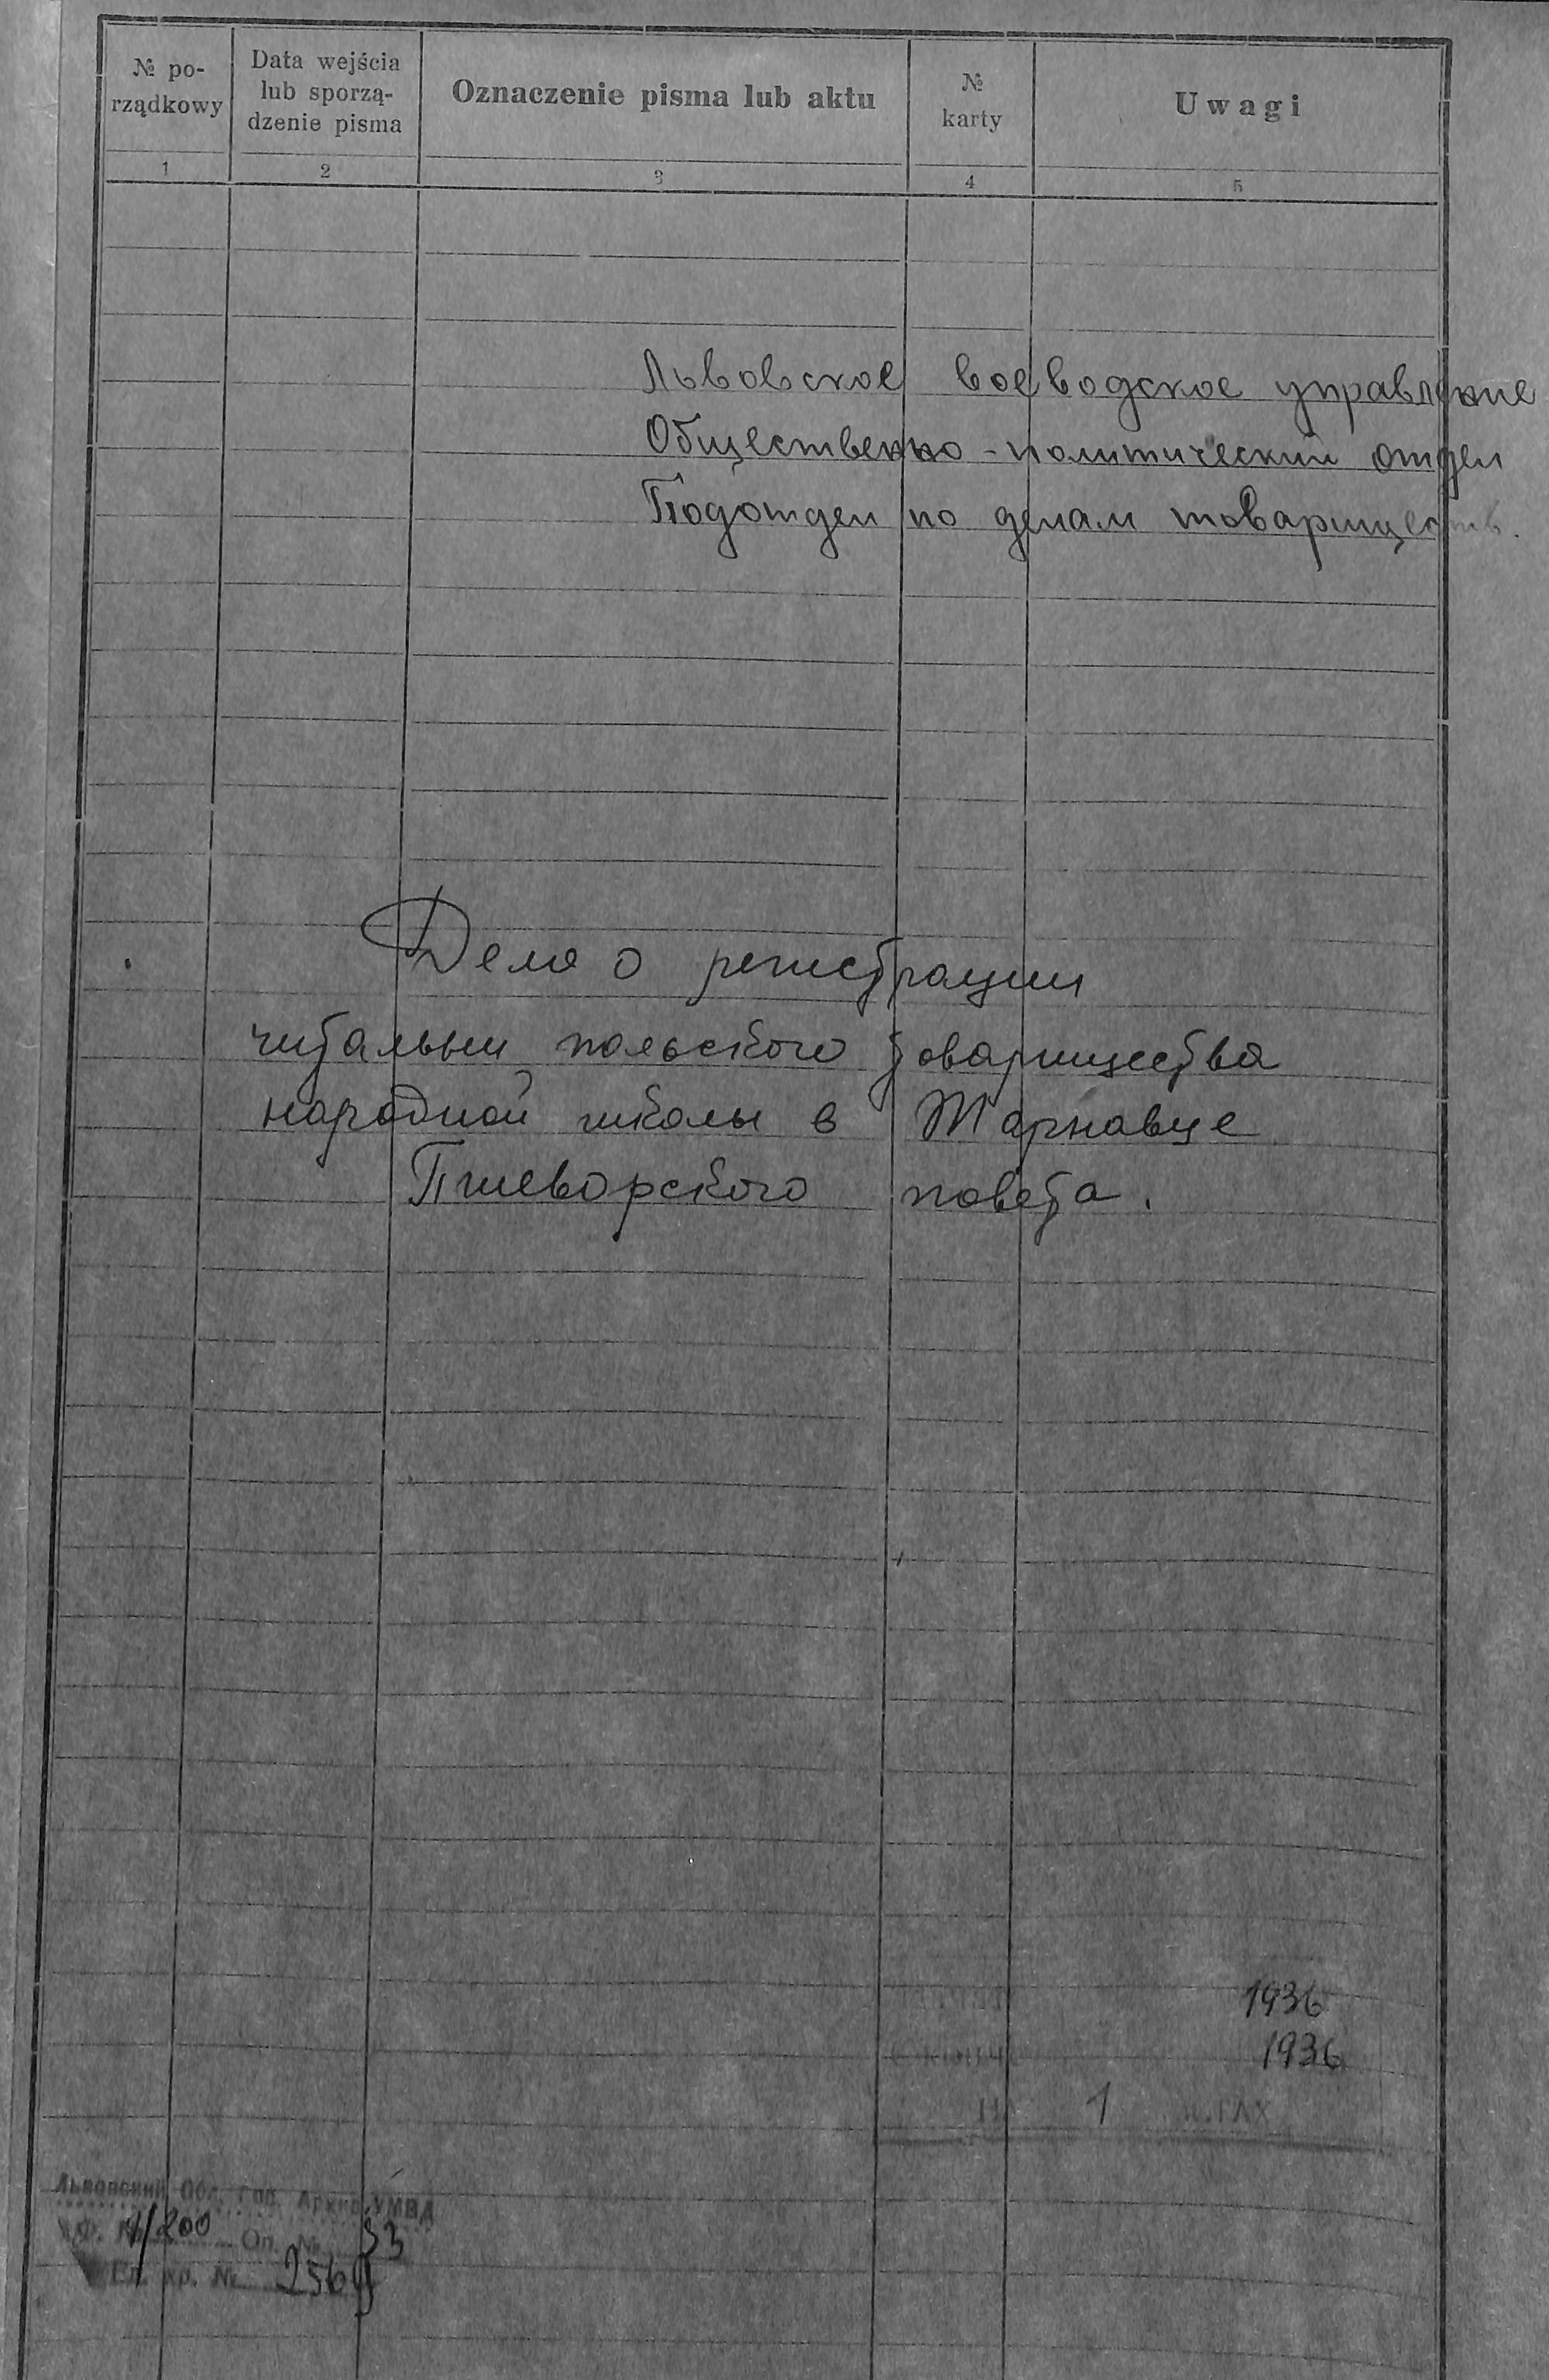 № po-
rządkowy
Data wejścia
lub sporzą-
dzenie pisma
Oznaczenie pisma lub aktu
№
karty
Uwagi
1 2 3 4 5
Львовское воеводское управление
Общественно-политический отдел
Подотдел по делам товариществ.
Дело о регистрации
читальни польского товарищества
народной школы в Тарнавце
Пшеворского повета.
1936
1936
на 1
Львовский Обл. Гос. Архив УМВД
Ф. № 1/200 Оп. № 53
Ед. хр. №